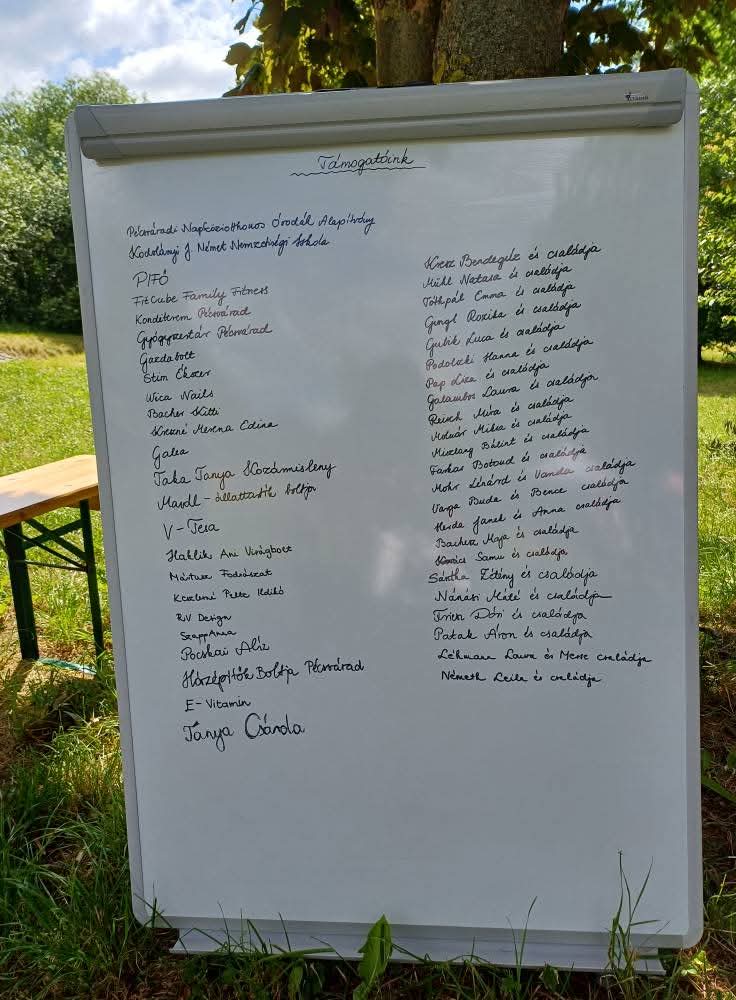 Támogatóink
Pécsváradi Napköziotthonos Óvodák Alapítvány
Kodolányi J. Német Nemzetiségi Iskola
PIFÓ
FitCube Family Fitness
Konditerem Pécsvárad
Gyógyszertár Pécsvárad
Gazdabolt
Stim Ékszer
Wica Nails
Bacher Kitti
Edina
Galea
Taka Tanya Kozármisleny
Mandl - állattartók boltja
V-Tesa
Haklik Ani Virágbolt
Mártusz Fodrászat
Pette Ildikó
RJV Design
SzappAnna
Pocskai Alíz
Házépítők Boltja Pécsvárad
E-Vitamin
Tanya Csárda
Kresz Bendegúz és családja
Mühl Natasa és családja
Tóthpál Emma és családja
Gungl Roxina és családja
Gubik Luca és családja
Podolszki Hanna és családja
Pap Liza és családja
Galambos Laura és családja
Reisch Mira és családja
Molnár Miksa és családja
Misztang Bálint és családja
Farkas Botond és családja
Mohr Lénárd és Vanda családja
Varga Buda és Bence családja
Herda Janek és Anna családja
Bachesz Maja és családja
Kovács Samu és családja
Sántha Zétény és családja
Nánási Máté és családja
Friesz Dóri és családja
Patak Áron és családja
Lehmann Laura és Messe családja
Németh Leila és családja